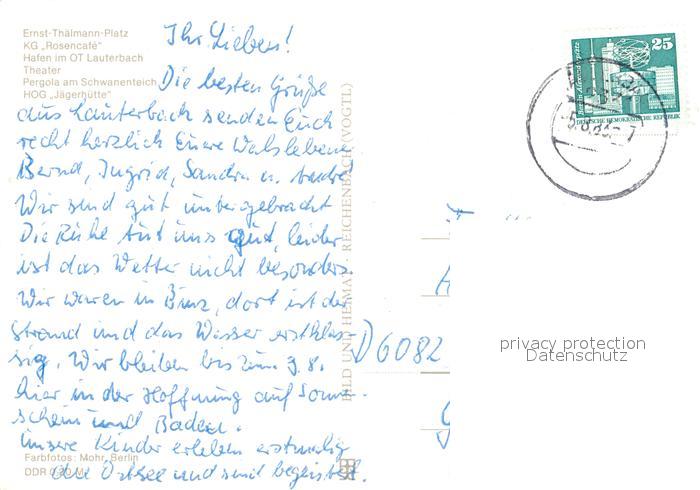 Ernst-Thälmann-Platz
KG „Rosencafé"
Hafen im OT Lauterbach
Theater
Pergola am Schwanenteich
HOG „Jägerhütte"
Ihr Lieben!
Die besten Grüße
aus Lauterbach senden Euch
recht herzlich Eure Walslebener
Bernd, Ingrid, Sandra u. André
Wir sind gut untergebracht
Die Ruhe tut uns gut, leider
ist das Wetter nicht besonders.
Wir waren in Binz, dort ist der
Strand und das Wasser erstklas-
sig. Wir bleiben bis zum 9.8.
hier in der Hoffnung auf Sonn-
schein und Baden.
Unsere Kinder erleben erstmalig
die Ostsee und sind begeistert.
Farbfotos: Mohr, Berlin
DDR M
BILD UND HEIMAT REICHENBACH (VOGTL)
25
DEUTSCHE DEMOKRATISCHE REPUBLIK
D6082
privacy protection
Datenschutz